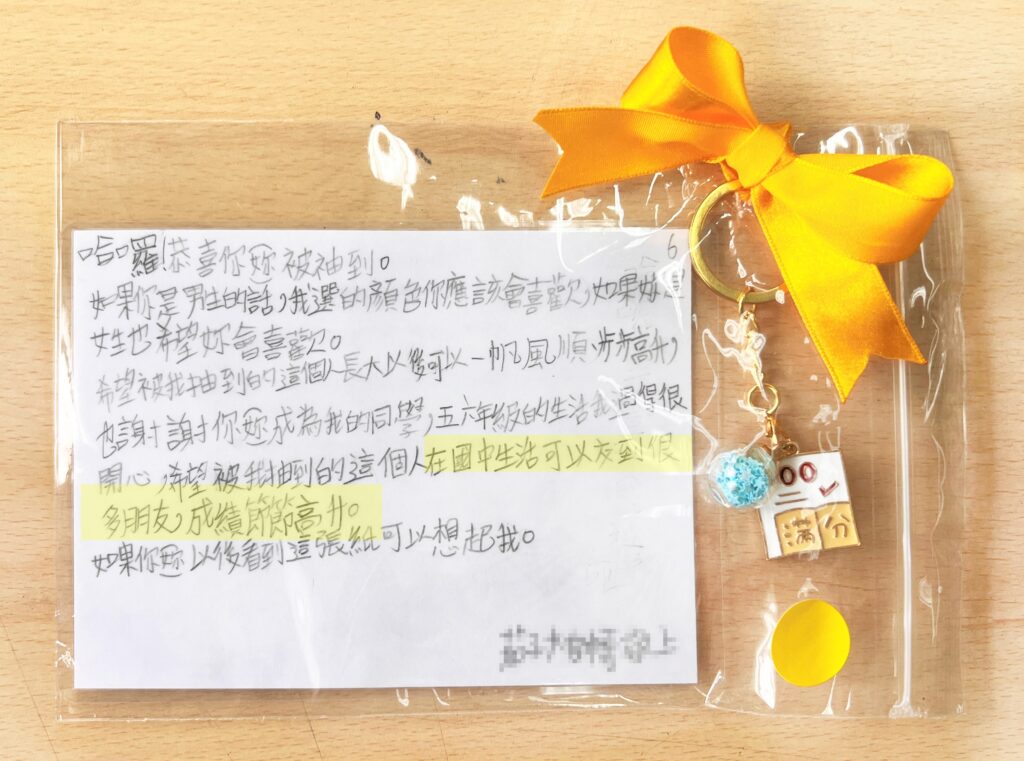 6
哈囉!恭喜你(妳)被抽到。
如果你是男生的話,我選的顏色你應該會喜歡,如果妳是
女生也希望妳會喜歡。
希望被我抽到的這個人長大以後可以一帆風順、步步高升,
也謝謝你(妳)成為我的同學,五六年級的生活我過得很
開心,希望被我抽到的這個人在國中生活可以交到很
多朋友,成績節節高升。
如果你(妳)以後看到這張紙可以想起我。
上
100
滿分